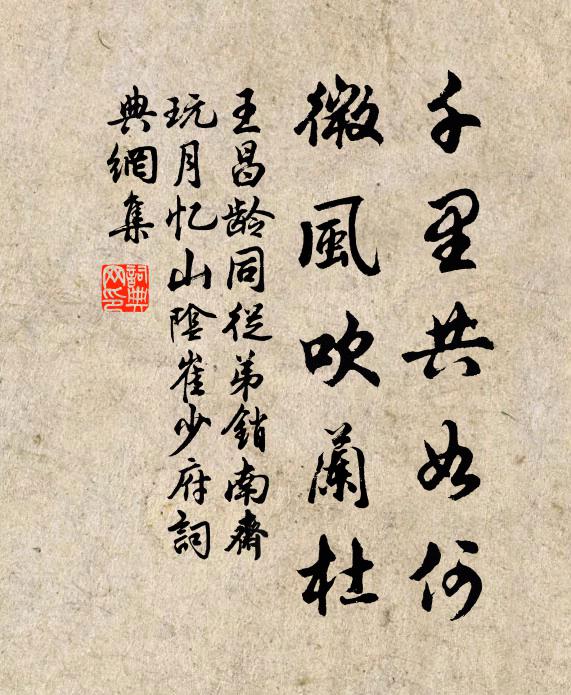 千里共如何
微風吹蘭杜
王昌龄同從弟銷南齋
玩月忆山陰崔少府詞
典網集
詞典網印